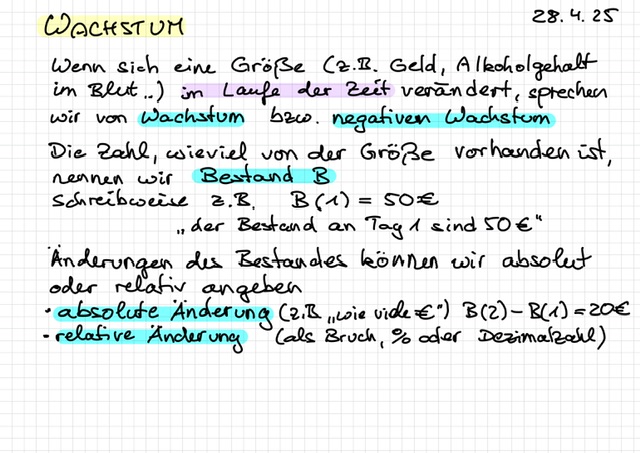 WACHSTUM
28.4.25
Wenn sich eine Größe (z.B. Geld, Alkoholgehalt
im Blut...) im Laufe der Zeit verändert, sprechen
wir von Wachstum bzw. negativen Wachstum
Die Zahl, wieviel von der Größe vorhanden ist,
nennen wir Bestand B
Schreibweise z.B. B(1) = 50€
„der Bestand an Tag 1 sind 50€"
Änderungen des Bestandes können wir absolut
oder relativ angeben
· absolute Änderung (z.B „wie viele €") B(2)-B(1)=20€
· relative Änderung (als Bruch, % oder Dezimalzahl)